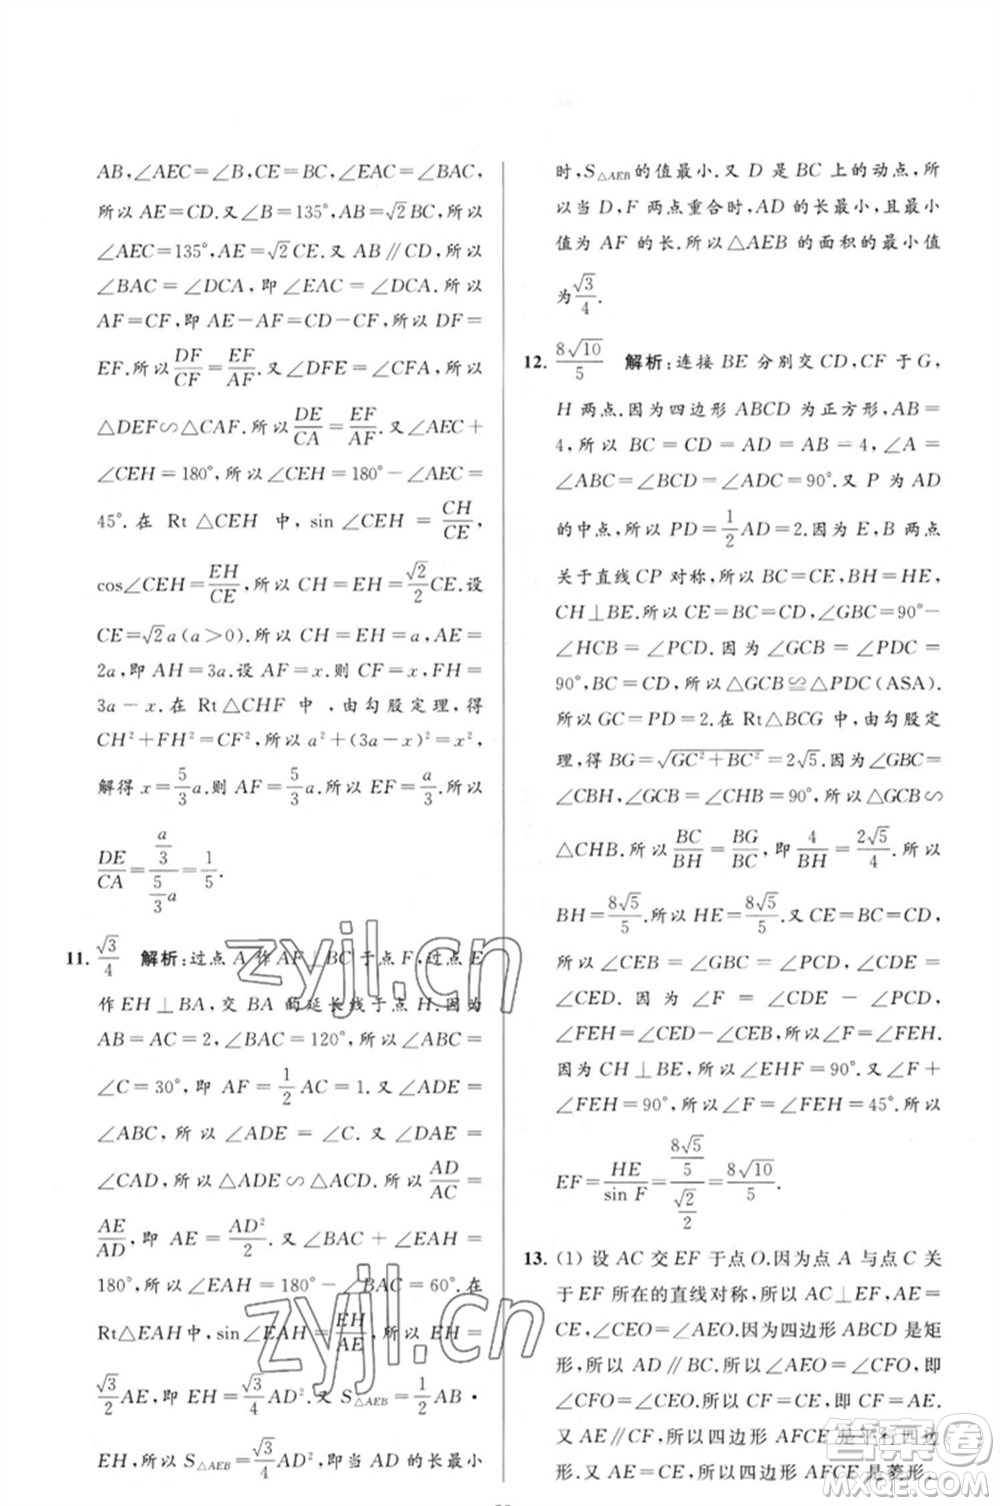 AB,∠AEC=∠B,CE=BC,∠EAC=∠BAC,
所以 AE=CD.又∠B=135°,AB=√2BC,所以
∠AEC=135°,AE=√2CE.又 AB∥CD,所以
∠BAC=∠DCA,即∠EAC=∠DCA,所以
AF=CF,即 AE-AF=CD-CF,所以 DF=
EF.所以 DF/CF=EF/AF.又∠DFE=∠CFA,所以
△DEF∽△CAF.所以 DE/CA=EF/AF.又∠AEC+
∠CEH=180°,所以∠CEH=180°-∠AEC=
45°.在 Rt△CEH 中,sin∠CEH=CH/CE,
cos∠CEH=EH/CE,所以 CH=EH=√2/2 CE.设
CE=√2a(a>0).所以 CH=EH=a,AE=
2a,即 AH=3a.设 AF=x.则 CF=x,FH=
3a-x.在 Rt△CHF 中,由勾股定理,得
CH²+FH²=CF²,所以 a²+(3a-x)²=x²,
解得 x=5/3 a.则 AF=5/3 a,所以 EF=a/3.所以
DE/CA=(a/3)/(5/3 a)=1/5.
11. √3/4 解析:过点 A 作 AF⊥BC 于点 F,过点 E
作 EH⊥BA,交 BA 的延长线于点 H.因为
AB=AC=2,∠BAC=120°,所以∠ABC=
∠C=30°,即 AF=1/2 AC=1.又∠ADE=
∠ABC,所以∠ADE=∠C.又∠DAE=
∠CAD,所以△ADE∽△ACD.所以 AD/AC=
AE/AD,即 AE=AD²/2.又∠BAC+∠EAH=
180°,所以∠EAH=180°-∠BAC=60°.在
Rt△EAH 中,sin∠EAH=EH/AE,所以 EH=
√3/2 AE,即 EH=√3/4 AD².又 S△AEB=1/2 AB·
EH,所以 S△AEB=√3/4 AD²,所以当 AD 的长最小
时,S△AEB的值最小.又 D 是 BC 上的动点,所
以当 D,F 两点重合时,AD 的长最小,且最小
值为 AF 的长.所以△AEB 的面积的最小值
为√3/4.
12. 8√10/5 解析:连接 BE 分别交 CD,CF 于 G,
H 两点.因为四边形 ABCD 为正方形,AB=
4,所以 BC=CD=AD=AB=4,∠A=
∠ABC=∠BCD=∠ADC=90°.又 P 为 AD
的中点,所以 PD=1/2 AD=2.因为 E,B 两点
关于直线 CP 对称,所以 BC=CE,BH=HE,
CH⊥BE.所以 CE=BC=CD,∠GBC=90°-
∠HCB=∠HCD=∠PCD.因为∠PDC=
90°,BC=CD,所以△GCB≌△PDC(ASA).
所以 GC=PD=2.在 Rt△BCG 中,由勾股定
理,得 BG=√(GC²+BC²)=2√5.因为∠GBC=
∠CBH,∠GCB=∠CHB=90°,所以△GCB∽
△CHB.所以 BC/BH=BG/BC,即 4/BH=2√5/4.所以
BH=8√5/5.所以 HE=8√5/5.又 CE=BC=CD,
所以∠CEB=∠GBC=∠PCD,∠CDE=
∠CED.因为∠F=∠CDE-∠PCD,
∠FEH=∠CED-∠CEB,所以∠F=∠FEH.
因为 CH⊥BE,所以∠EHF=90°.所以∠F+
∠FEH=90°,所以∠F=∠FEH=45°.所以
EF=HE/sin F=(8√5/5)/(√2/2)=8√10/5.
13. (1) 设 AC 交 EF 于点 O.因为点 A 与点 C 关
于 EF 所在的直线对称,所以 AC⊥EF,AE=
CE,∠CEO=∠AEO.因为四边形 ABCD 是矩
形,所以 AD∥BC.所以∠AEO=∠CFO,即
∠CFO=∠CEO.所以 CF=CE,即 CF=AE.
又 AE∥CF,所以四边形 AFCE 是平行四边
形.又 AE=CE,所以四边形 AFCE 是菱形.
zyjl.cn
zyjl.cn
答案圈